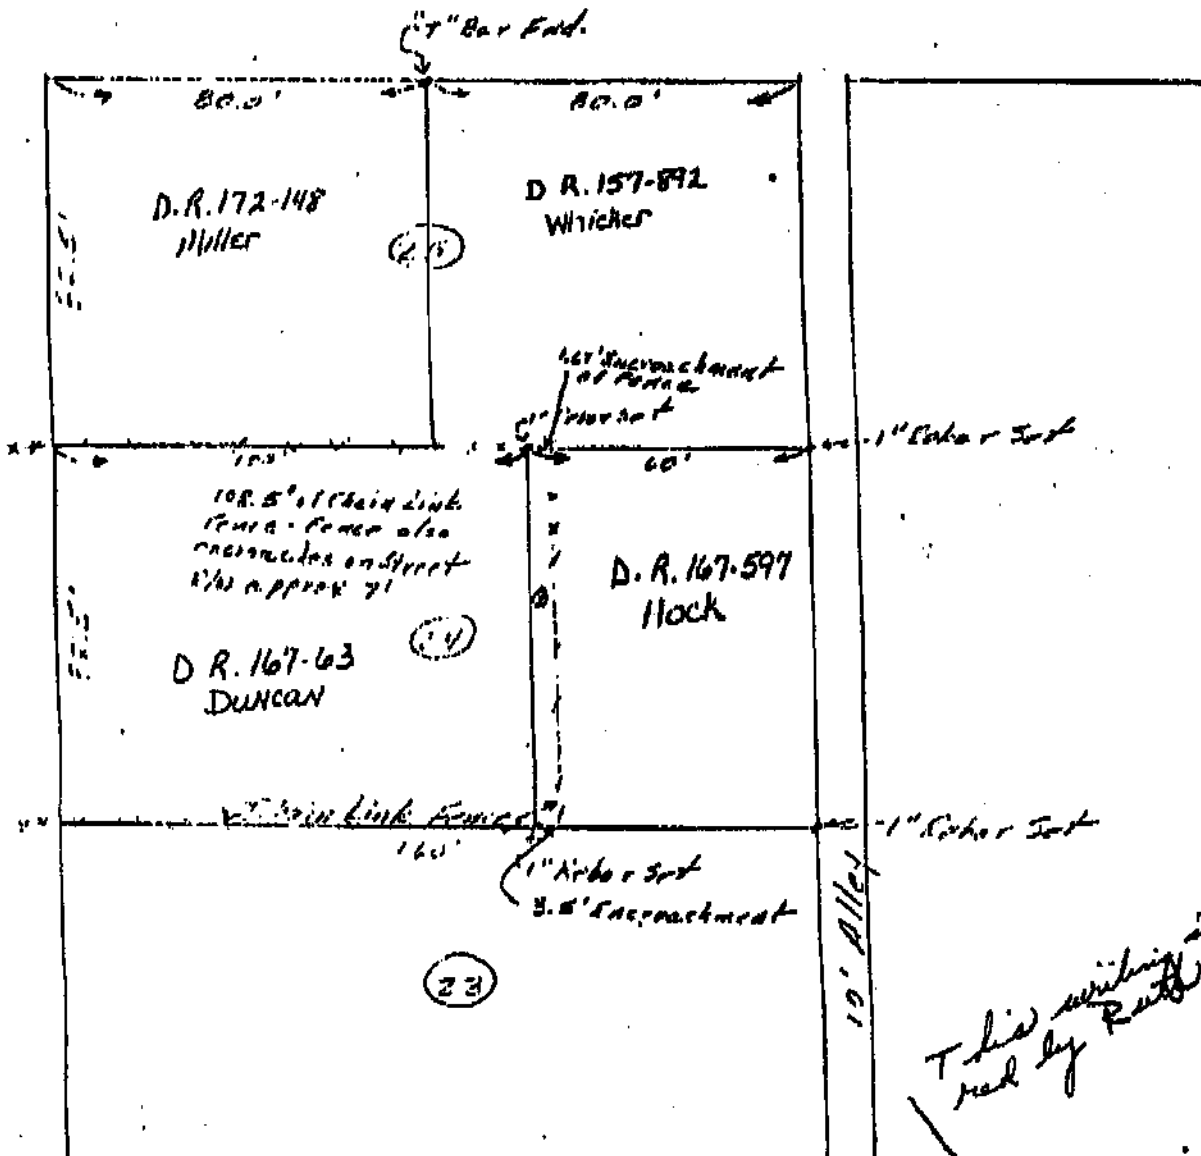 "T" Bar Fnd.
80.0'
80.0'
D.R. 172-148
Miller
D R. 157-892
Whicker
Encroachment
of Fence
1" Rebar Set
60'
108.5' of Chain Link
Fence - Fence also
encroaches on Street
R/W approx
D. R. 167-597
Hock
24
D R. 167-63
DUNCAN
Chain Link Fence
160'
1" Rebar Set
1" Rebar Set
3.5' Encroachment
10' Alley
23
This writing
red by Ruth